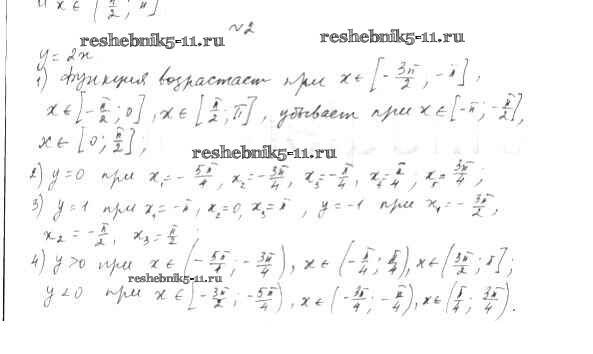 и x ∈ [π/2; π]
№2
reshebnik5-11.ru
reshebnik5-11.ru
y = 2x
1) Функция возрастает при x ∈ [-3π/2, -π],
x ∈ [-π/2; 0], x ∈ [π/2; π], убывает при x ∈ [-π; -π/2],
x ∈ [0; π/2],
reshebnik5-11.ru
2) y = 0 при x₁ = -5π/4, x₂ = -3π/4, x₃ = -π/4, x₄ = π/4, x₅ = 3π/4;
3) y = 1 при x₁ = -π, x₂ = 0, x₃ = π, y = -1 при x₁ = -3π/2,
x₂ = -π/2, x₃ = π/2;
4) y > 0 при x ∈ (-5π/4; -3π/4), x ∈ (-π/4; π/4), x ∈ (3π/2; π];
reshebnik5-11.ru
y < 0 при x ∈ [-3π/2; -5π/4), x ∈ (-3π/4; -π/4), x ∈ (π/4; 3π/4).